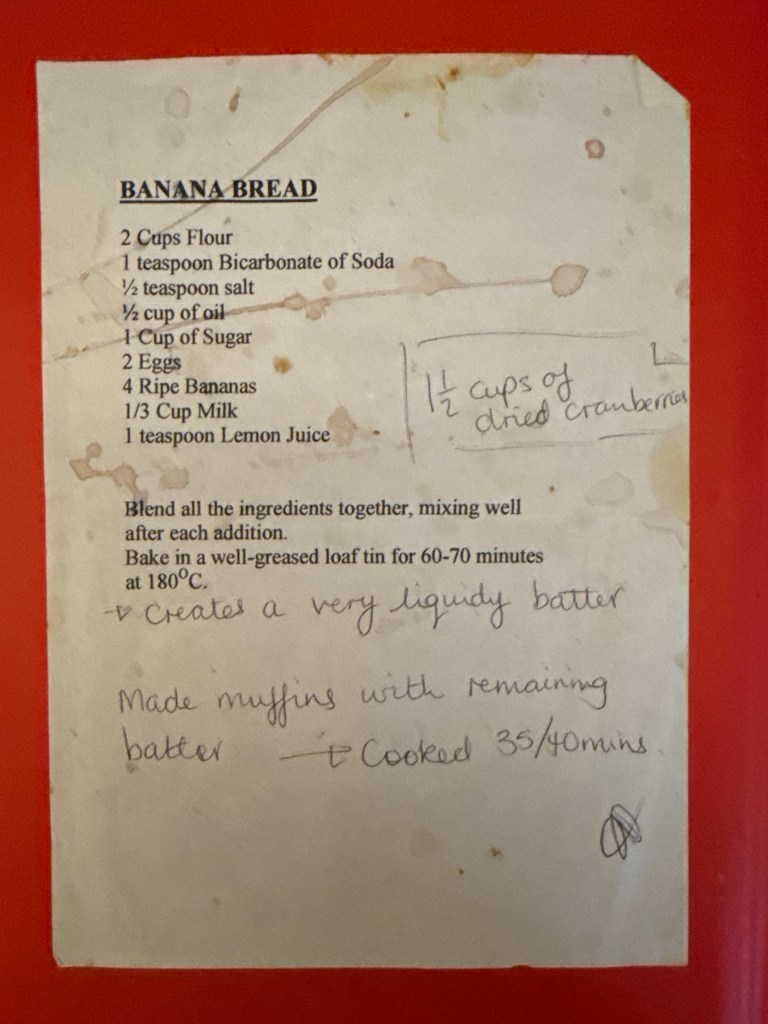 BANANA BREAD
2 Cups Flour
1 teaspoon Bicarbonate of Soda
½ teaspoon salt
½ cup of oil
1 Cup of Sugar
2 Eggs
4 Ripe Bananas
1/3 Cup Milk
1 teaspoon Lemon Juice
1 1/2 cups of
dried cranberries
Blend all the ingredients together, mixing well
after each addition.
Bake in a well-greased loaf tin for 60-70 minutes
at 180⁰C.
→ Creates a very liquidy batter
Made muffins with remaining
batter → Cooked 35/40mins.